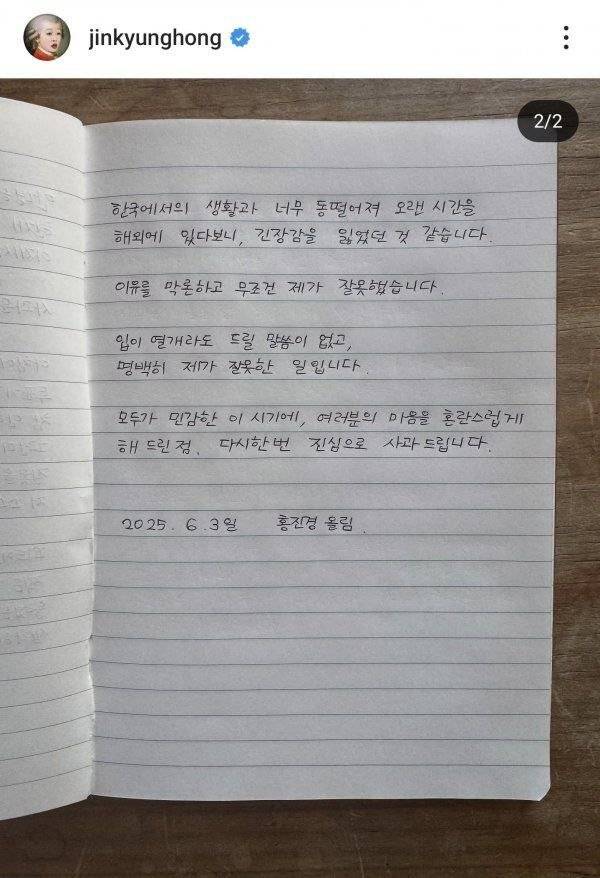 jinkyunghong
2/2
한국에서의 생활과 너무 동떨어져 오랜 시간을
해외에 있다보니, 긴장감을 잃었던 것 같습니다.
이유를 막론하고 무조건 제가 잘못했습니다.
입이 열개라도 드릴 말씀이 없고,
명백히 제가 잘못한 일입니다.
모두가 민감한 이 시기에, 여러분의 마음을 혼란스럽게
해 드린 점, 다시한번 진심으로 사과드립니다.
2025. 6. 3일 홍진경 올림.